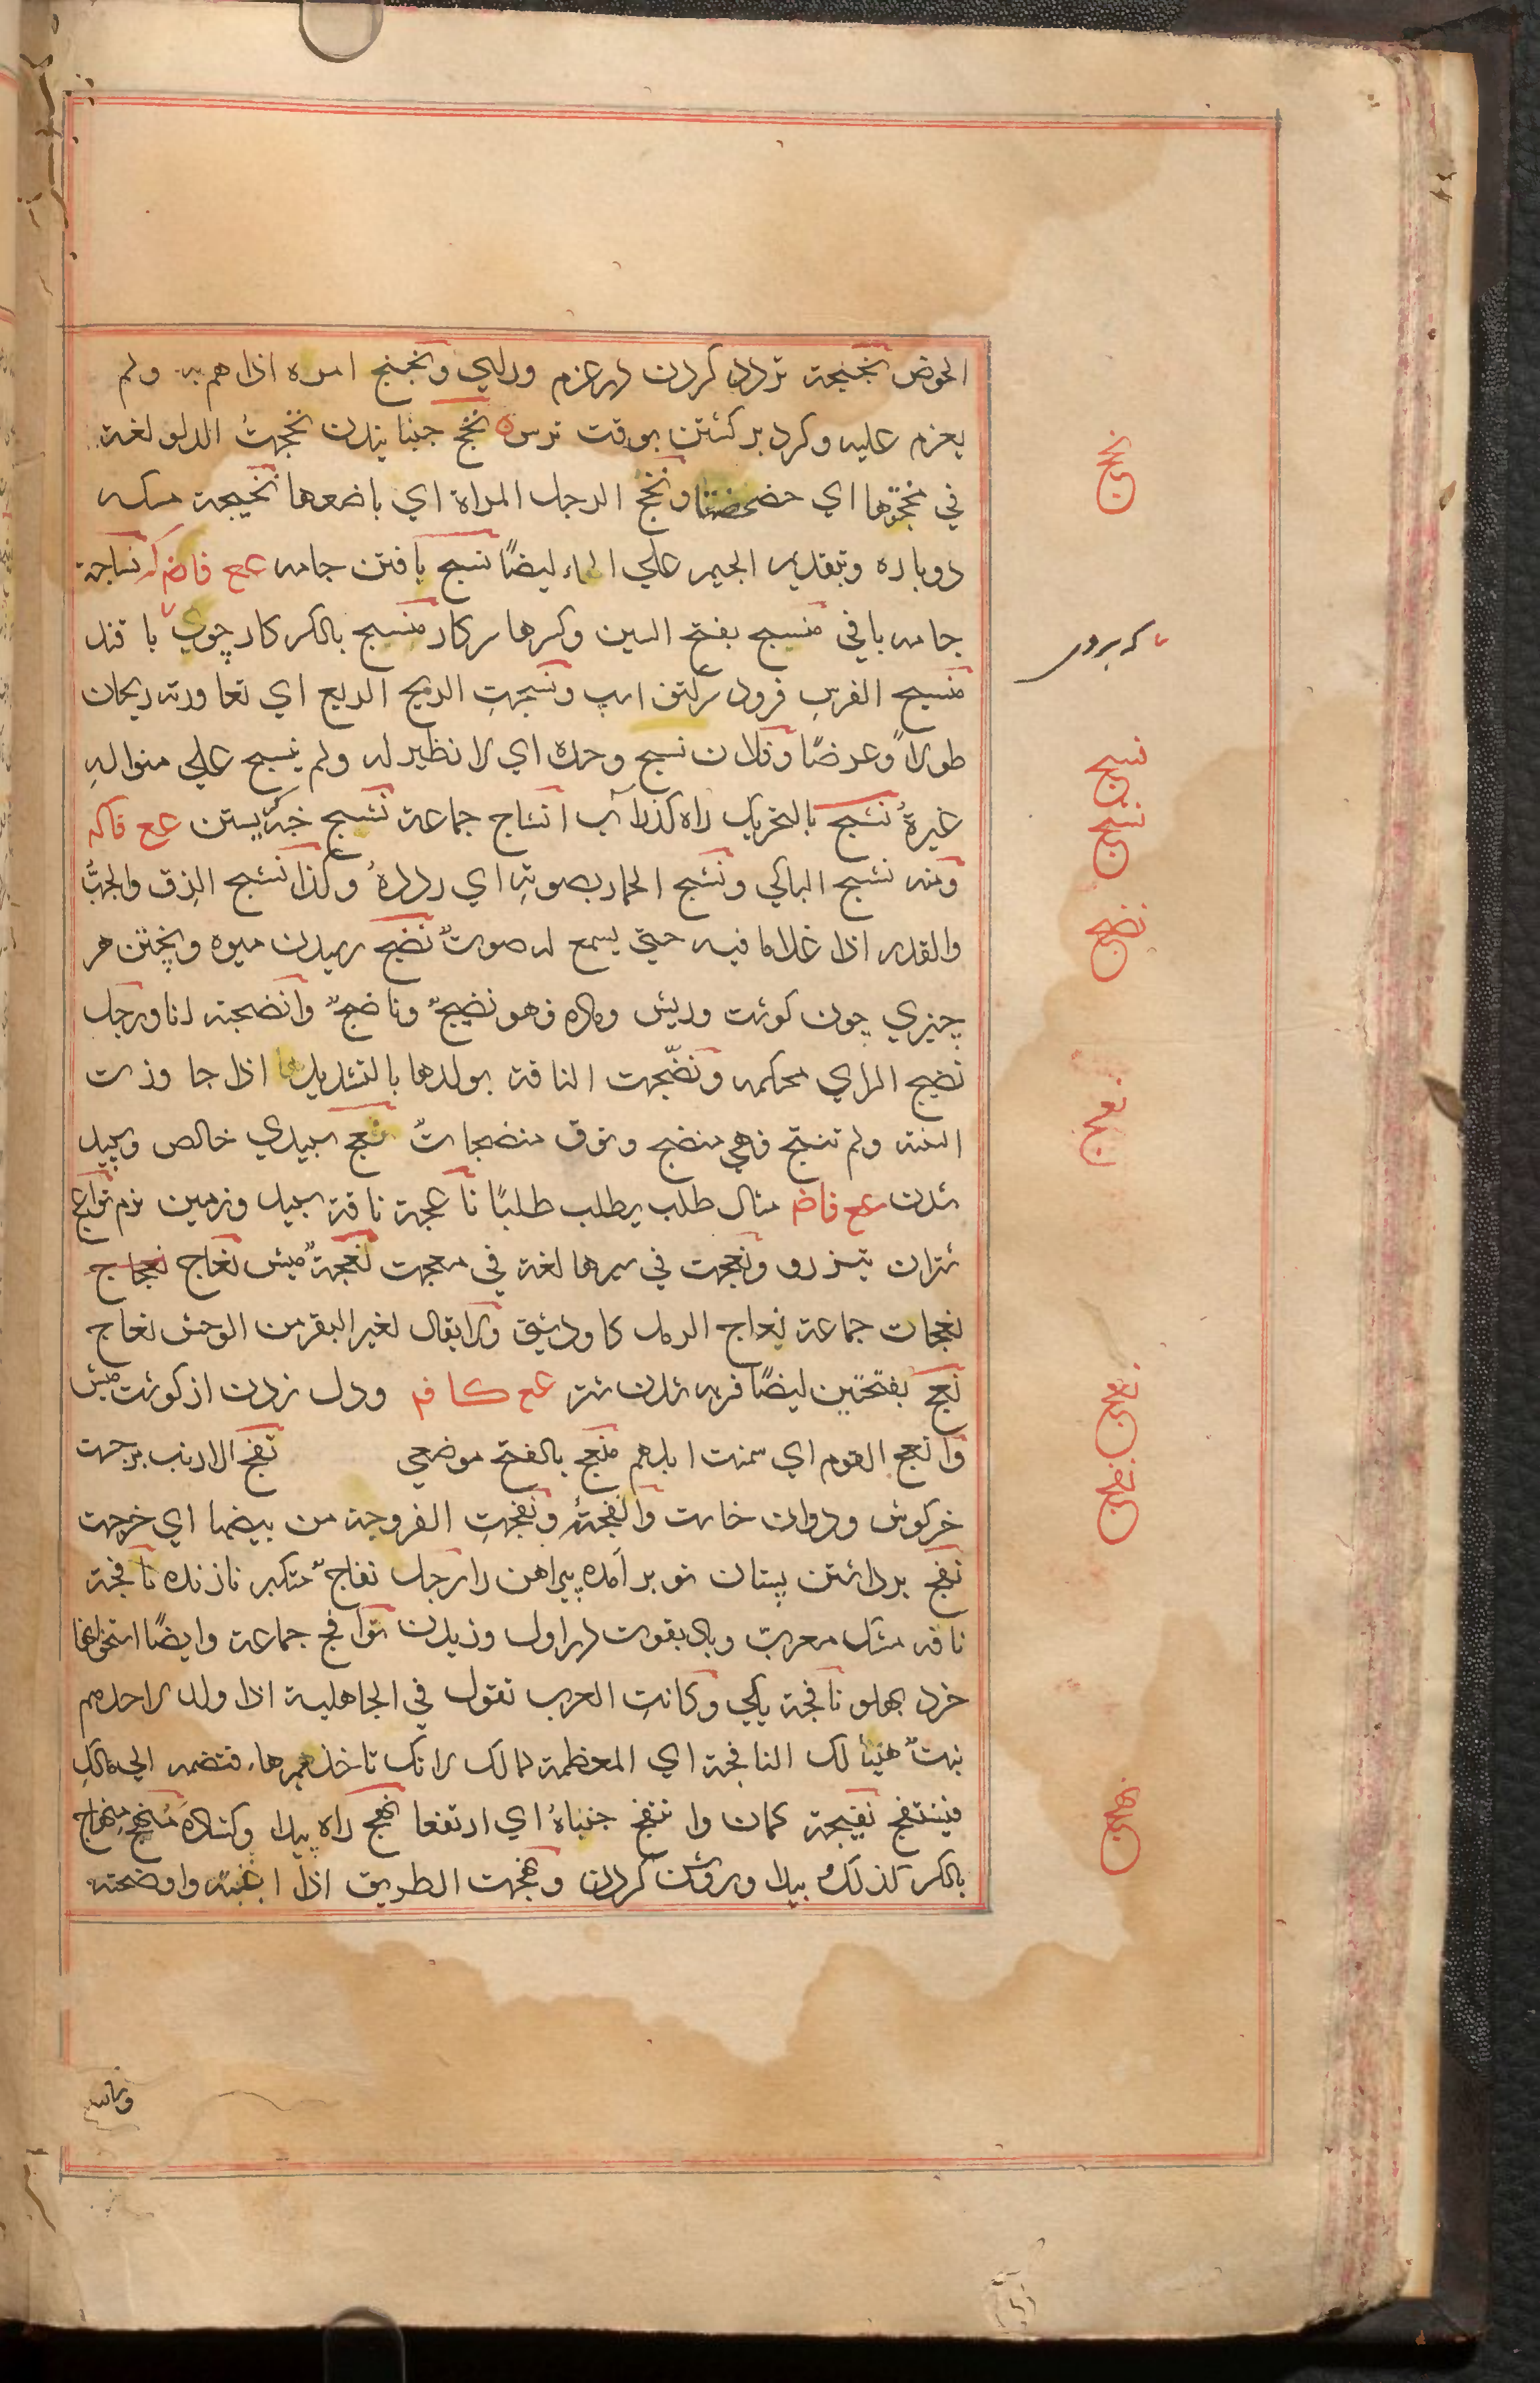 الحوض نجنجة تردد كردن در عزم وراي ونجنج امره اذا هم به ولم
يعزم عليه وكرد بركشتن بوقت ترس نخج جنبانيدن نخجتُ الدلو لغة
في مخجتها اي خضخضتها ونخج الرجل المراة اي باضعها نخيجة مسكه
دوباره وبتقديم الجيم علي الخاء ايضًا نسج بافتن جامه عع فاضم كم نساجة
جامه بافي منسج بفتح السين وكسرها بركار منسج بالكسر كارچوب بافند
منسج الفرس فرود بركتف اسپ ونسجتِ الريح الربع اي تعاورته ريحان
طولاً وعرضًا وفلان نسج وحده اي لا نظير له ولم ينسج علي منواله
غيرهُ نشج بالتحريك راه گذر آب انشاج جماعة نشيج گريستن عع فاكم
ومنه نشج الباكي ونشج الحمار بصوته اي رددهُ وكذا نشج الزق والحبُّ
والقدر اذا غلا ما فيه حتي يسمع له صوتٌ نضج رسيدن ميوه وپختن هر
چيزي چون گوشت وريش وماده فهو نضيجٌ وناضجٌ وانضجته انا ورجل
نضيج الراي محكمه ونضّجت الناقة بولدها بالتشديد اذا جاوزت
السنة ولم تنتج فهي منضج ونوق منضجاتٌ نعج سپيدي خالص وسپيد
شدن عع فاضم مثال طلب يطلب طلبًا ناعجة ناقة سپيد وزمين نرم نواعج
شتران تيزرو ونعجت في سيرها لغة في معجت نعجةٌ ميش نعاج
نعجات جماعة نعاج الرمل گاو دشتي ولا يقال لغير البقر من الوحش نعاج
نعج بفتحتين ايضًا فربه شدن شتر عع كافم ودل زدن از گوشت ميش
وانعج القوم اي سمنت ابلهم منعج بالفتح موضعي نفج الارنب برجست
خرگوش ودوان خاست وانفجتهُ ونفجتِ الفروجة من بيضها اي خرجت
نفج برداشتن پستان نو برآمده پيراهن را رجل نفاجٌ متكبر نازنده نافجة
نافه مشك معرب وباد بقوت در اول وزيدن نوافج جماعة وايضًا استخوانها
خرد پهلو نافجة يكي وكانتِ العرب تقول في الجاهلية اذا ولد لاحدهم
بنتٌ هنيئا لك النافجة اي المعظمة لمالك لانك تاخذ مهرها فتضمه الي مالك
فينتفج نفيجة كمان وانتفج جنباهُ اي ارتفعا نهج راه پيدا وگشاده منهج منهاج
بالكسر كذلك پيدا وروشن كردن ونهجت الطريق اذا ابنته واوضحته
نخج
نسج
نشج
نضج
نعج
نفج
نهج